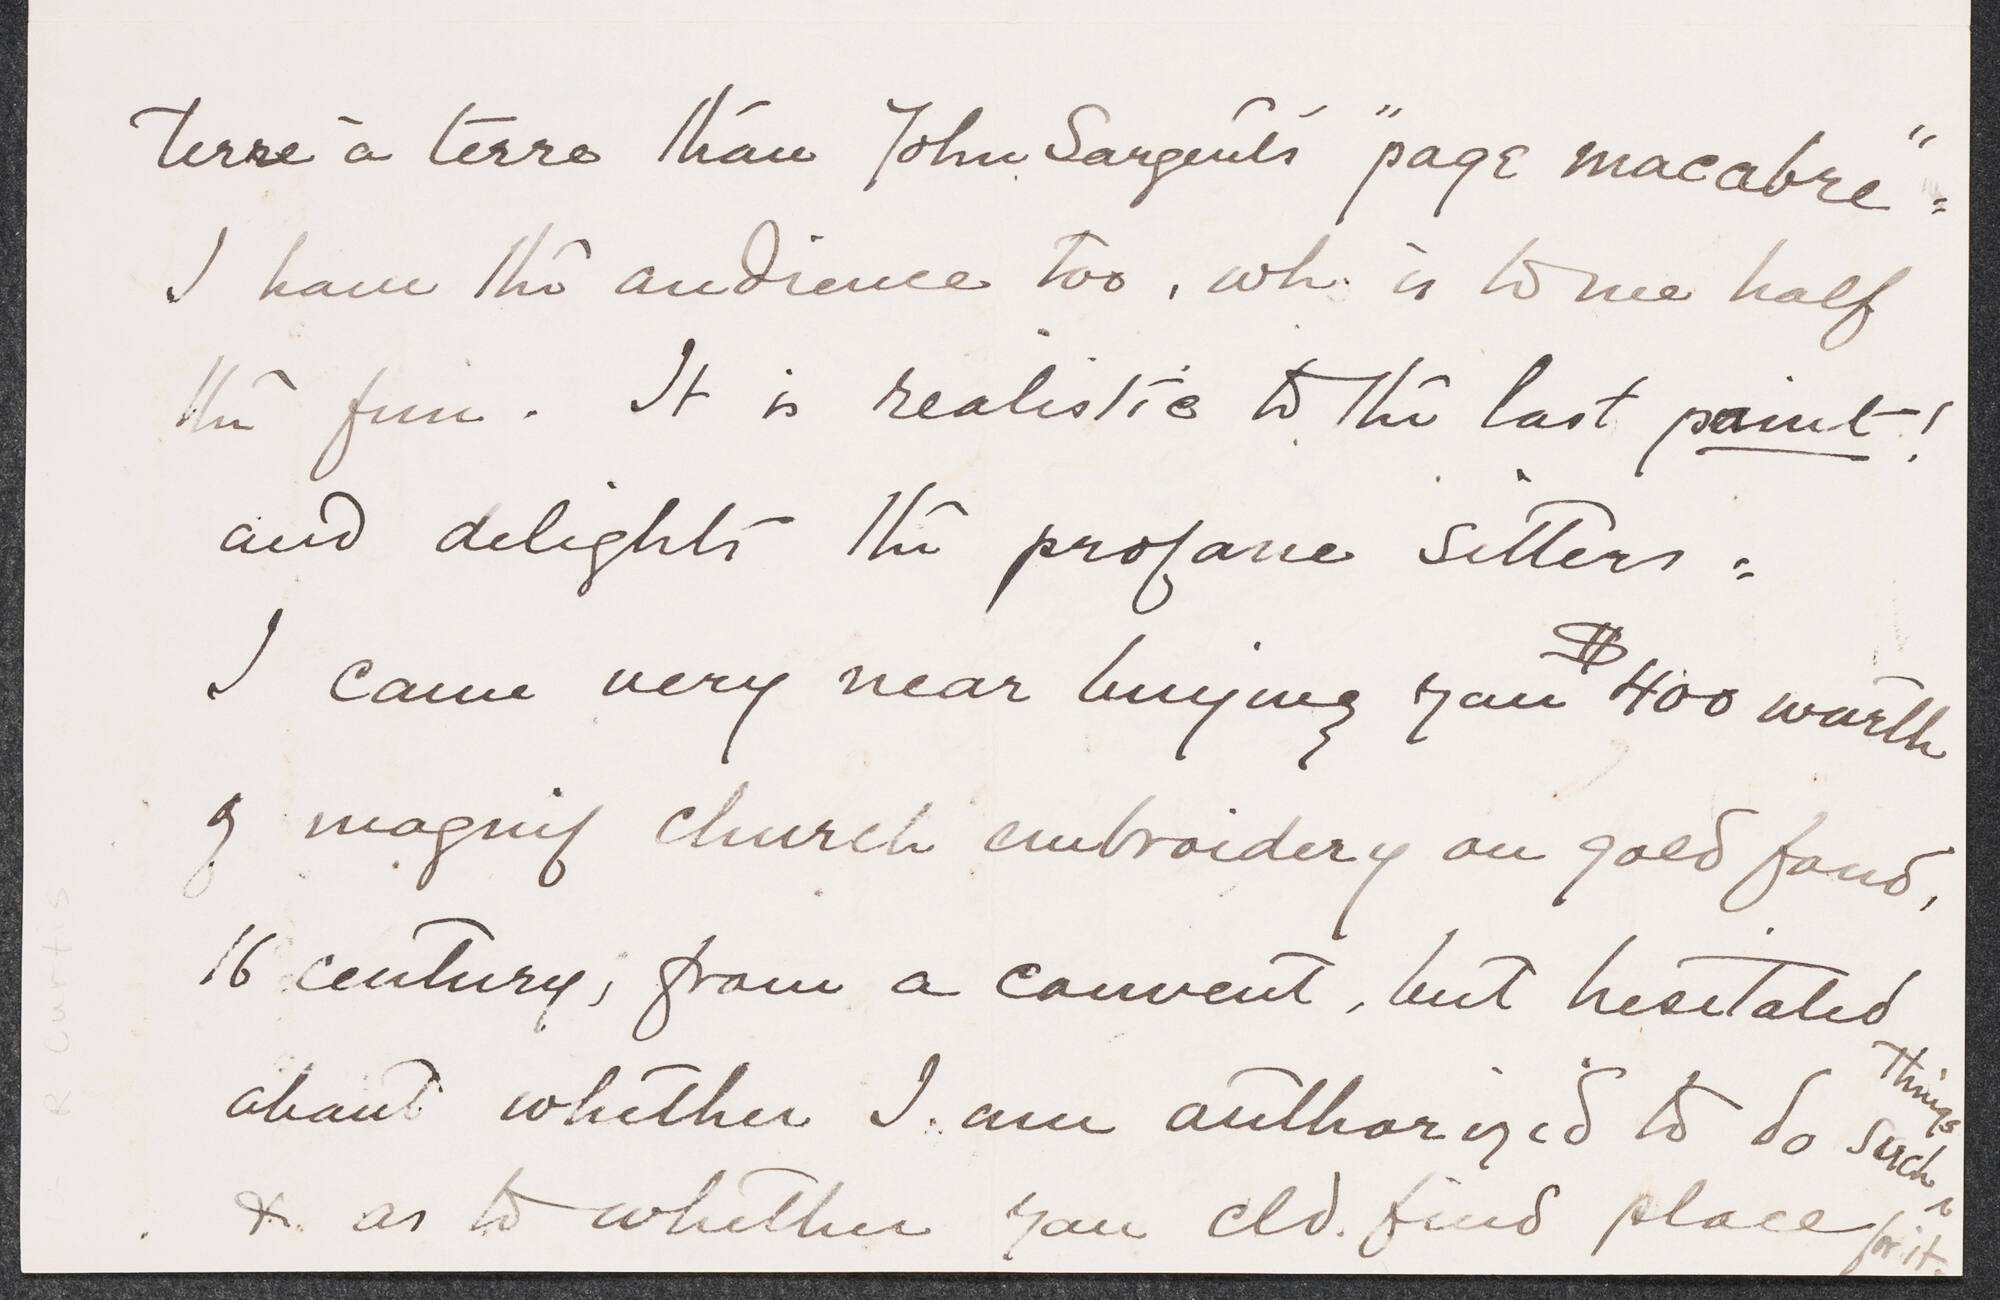 terre à terre than John Sargent's "page macabre".
I have the audience too, wh. is to me half
the fun. It is realistic to the last paint!
and delights the profane sitters.
I came very near buying you $400 worth
of magnif church embroidery on gold fond,
16 century, from a convent, but hesitated
about whether I am authorized to do such things
& as to whether you cld. find place for it.
R Curtis